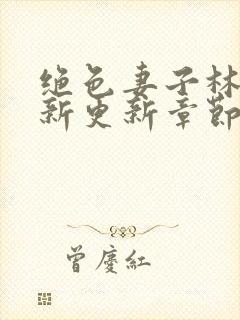 绝色妻子林
新更新章節
曾慶紅